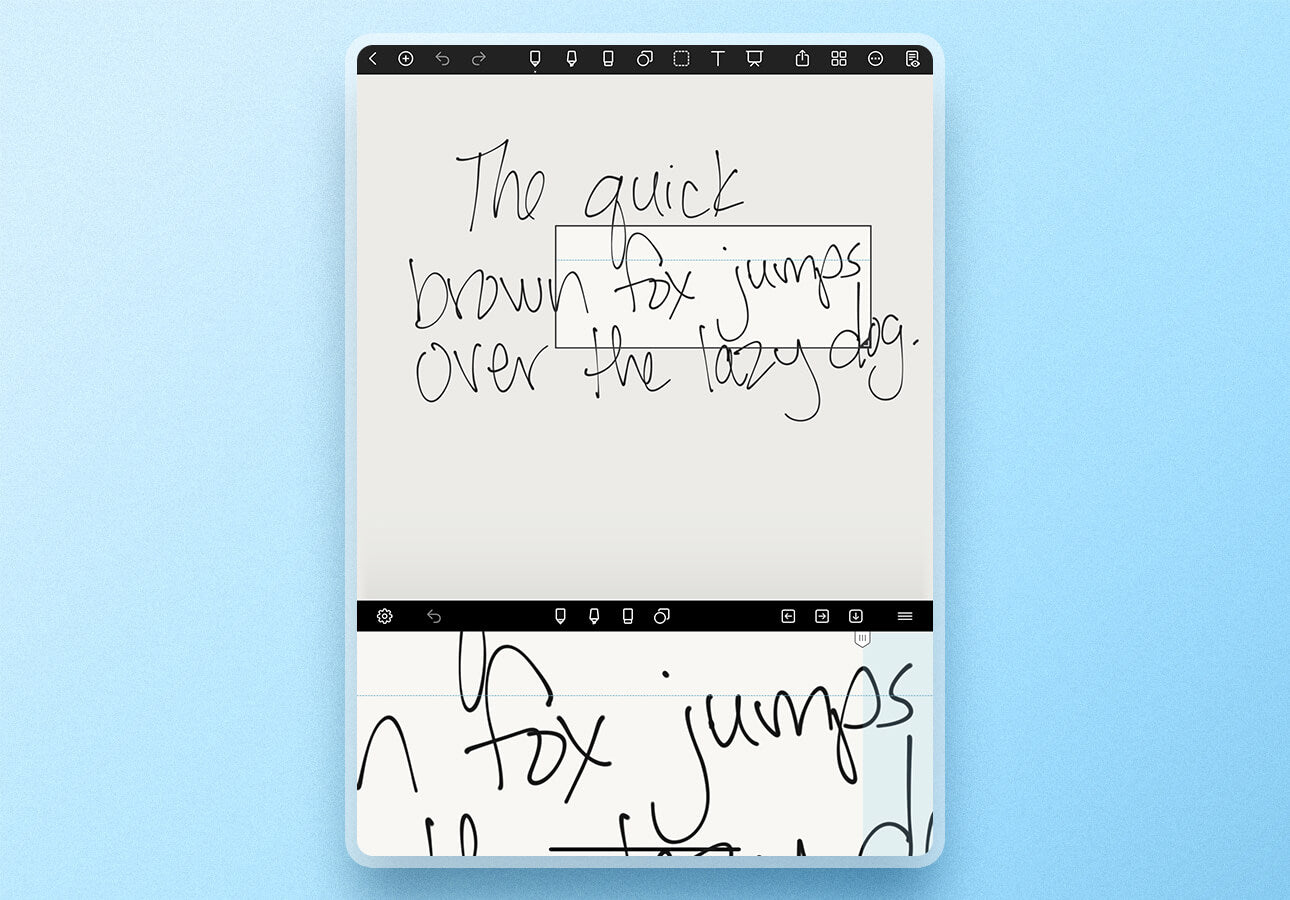 The quick
brown fox jumps
over the lazy dog.
n fox jumps
the lazy d